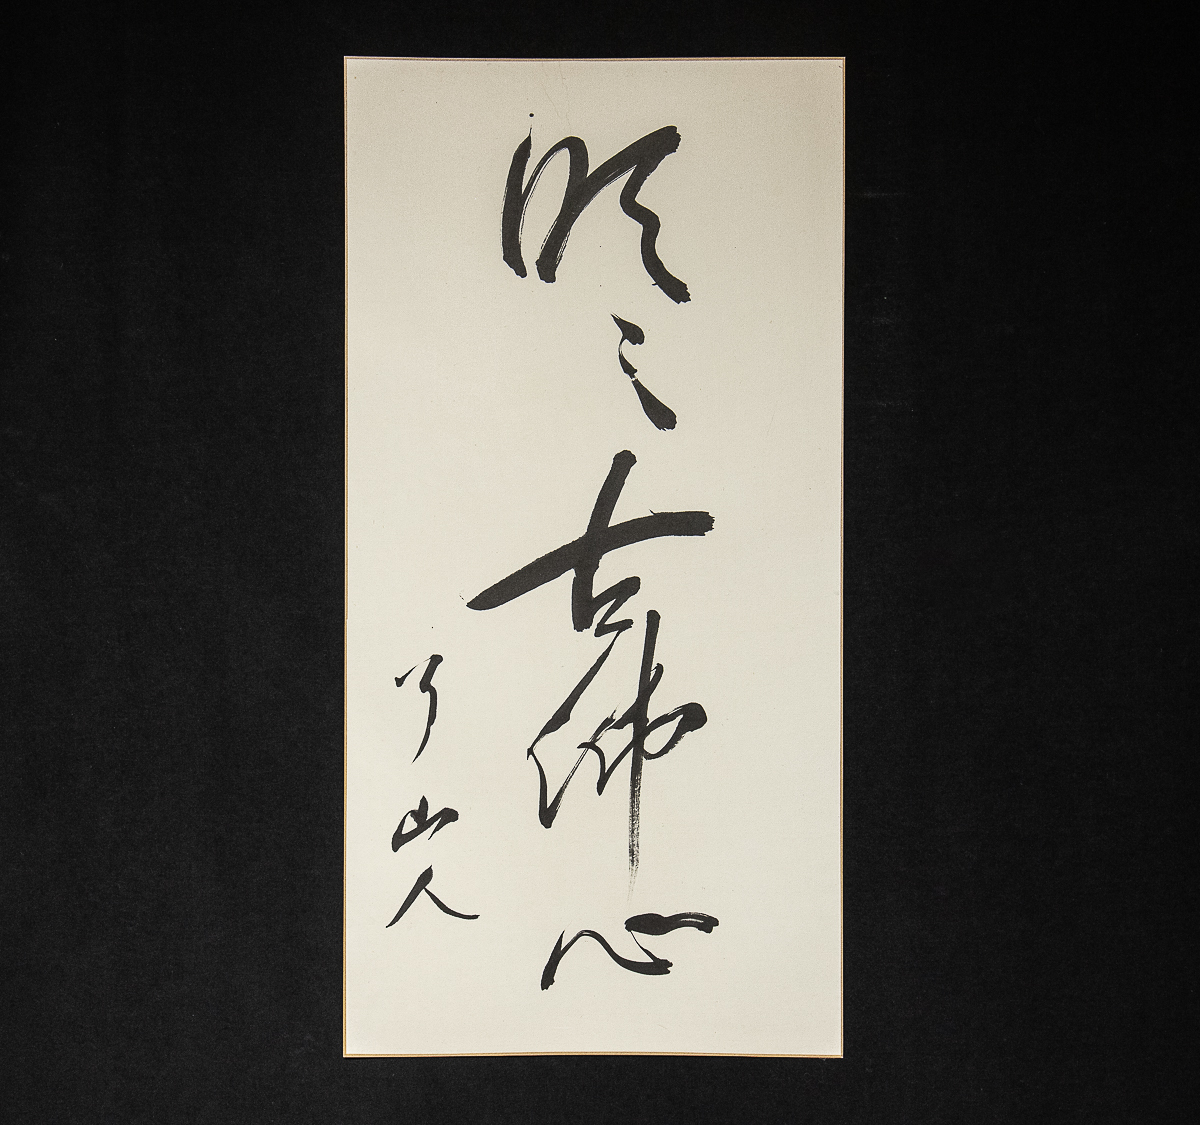 明々古佛心
山人